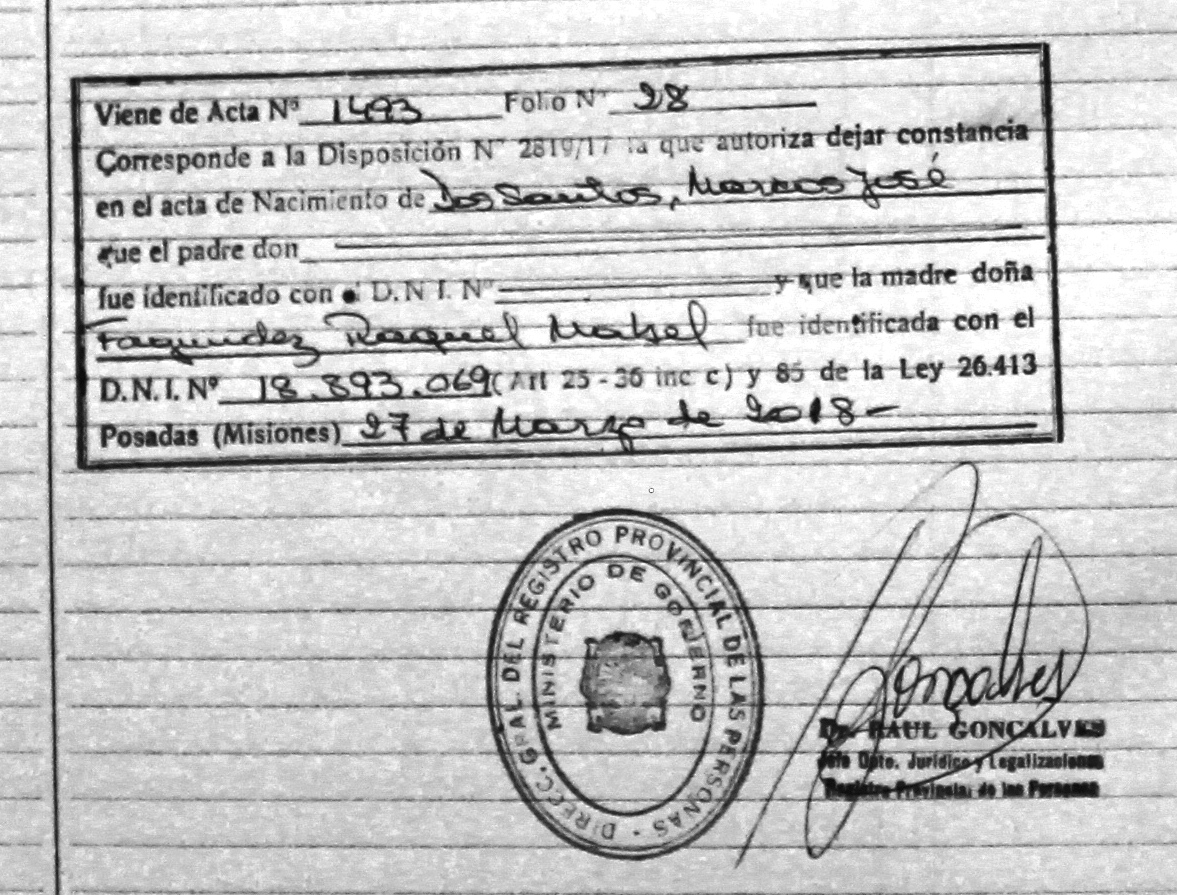 Viene de Acta Nº 1493 Folio Nº 28
Corresponde a la Disposición Nº 2819/17 la que autoriza dejar constancia
en el acta de Nacimiento de Dos Santos, Marcos José
que el padre don
fue identificado con el D.N.I. Nº y que la madre doña
Fagundez Raquel Mabel fue identificada con el
D.N.I. Nº 18.893.069 (Art 25 - 36 inc c) y 85 de la Ley 26.413
Posadas (Misiones) 27 de Marzo de 2018-
DIRECC. GRAL. DEL REGISTRO PROVINCIAL DE LAS PERSONAS
MINISTERIO DE GOBIERNO
Gonçalves
Dr. RAUL GONCALVES
Jefe Dpto. Jurídico y Legalizaciones
Registro Provincial de las Personas